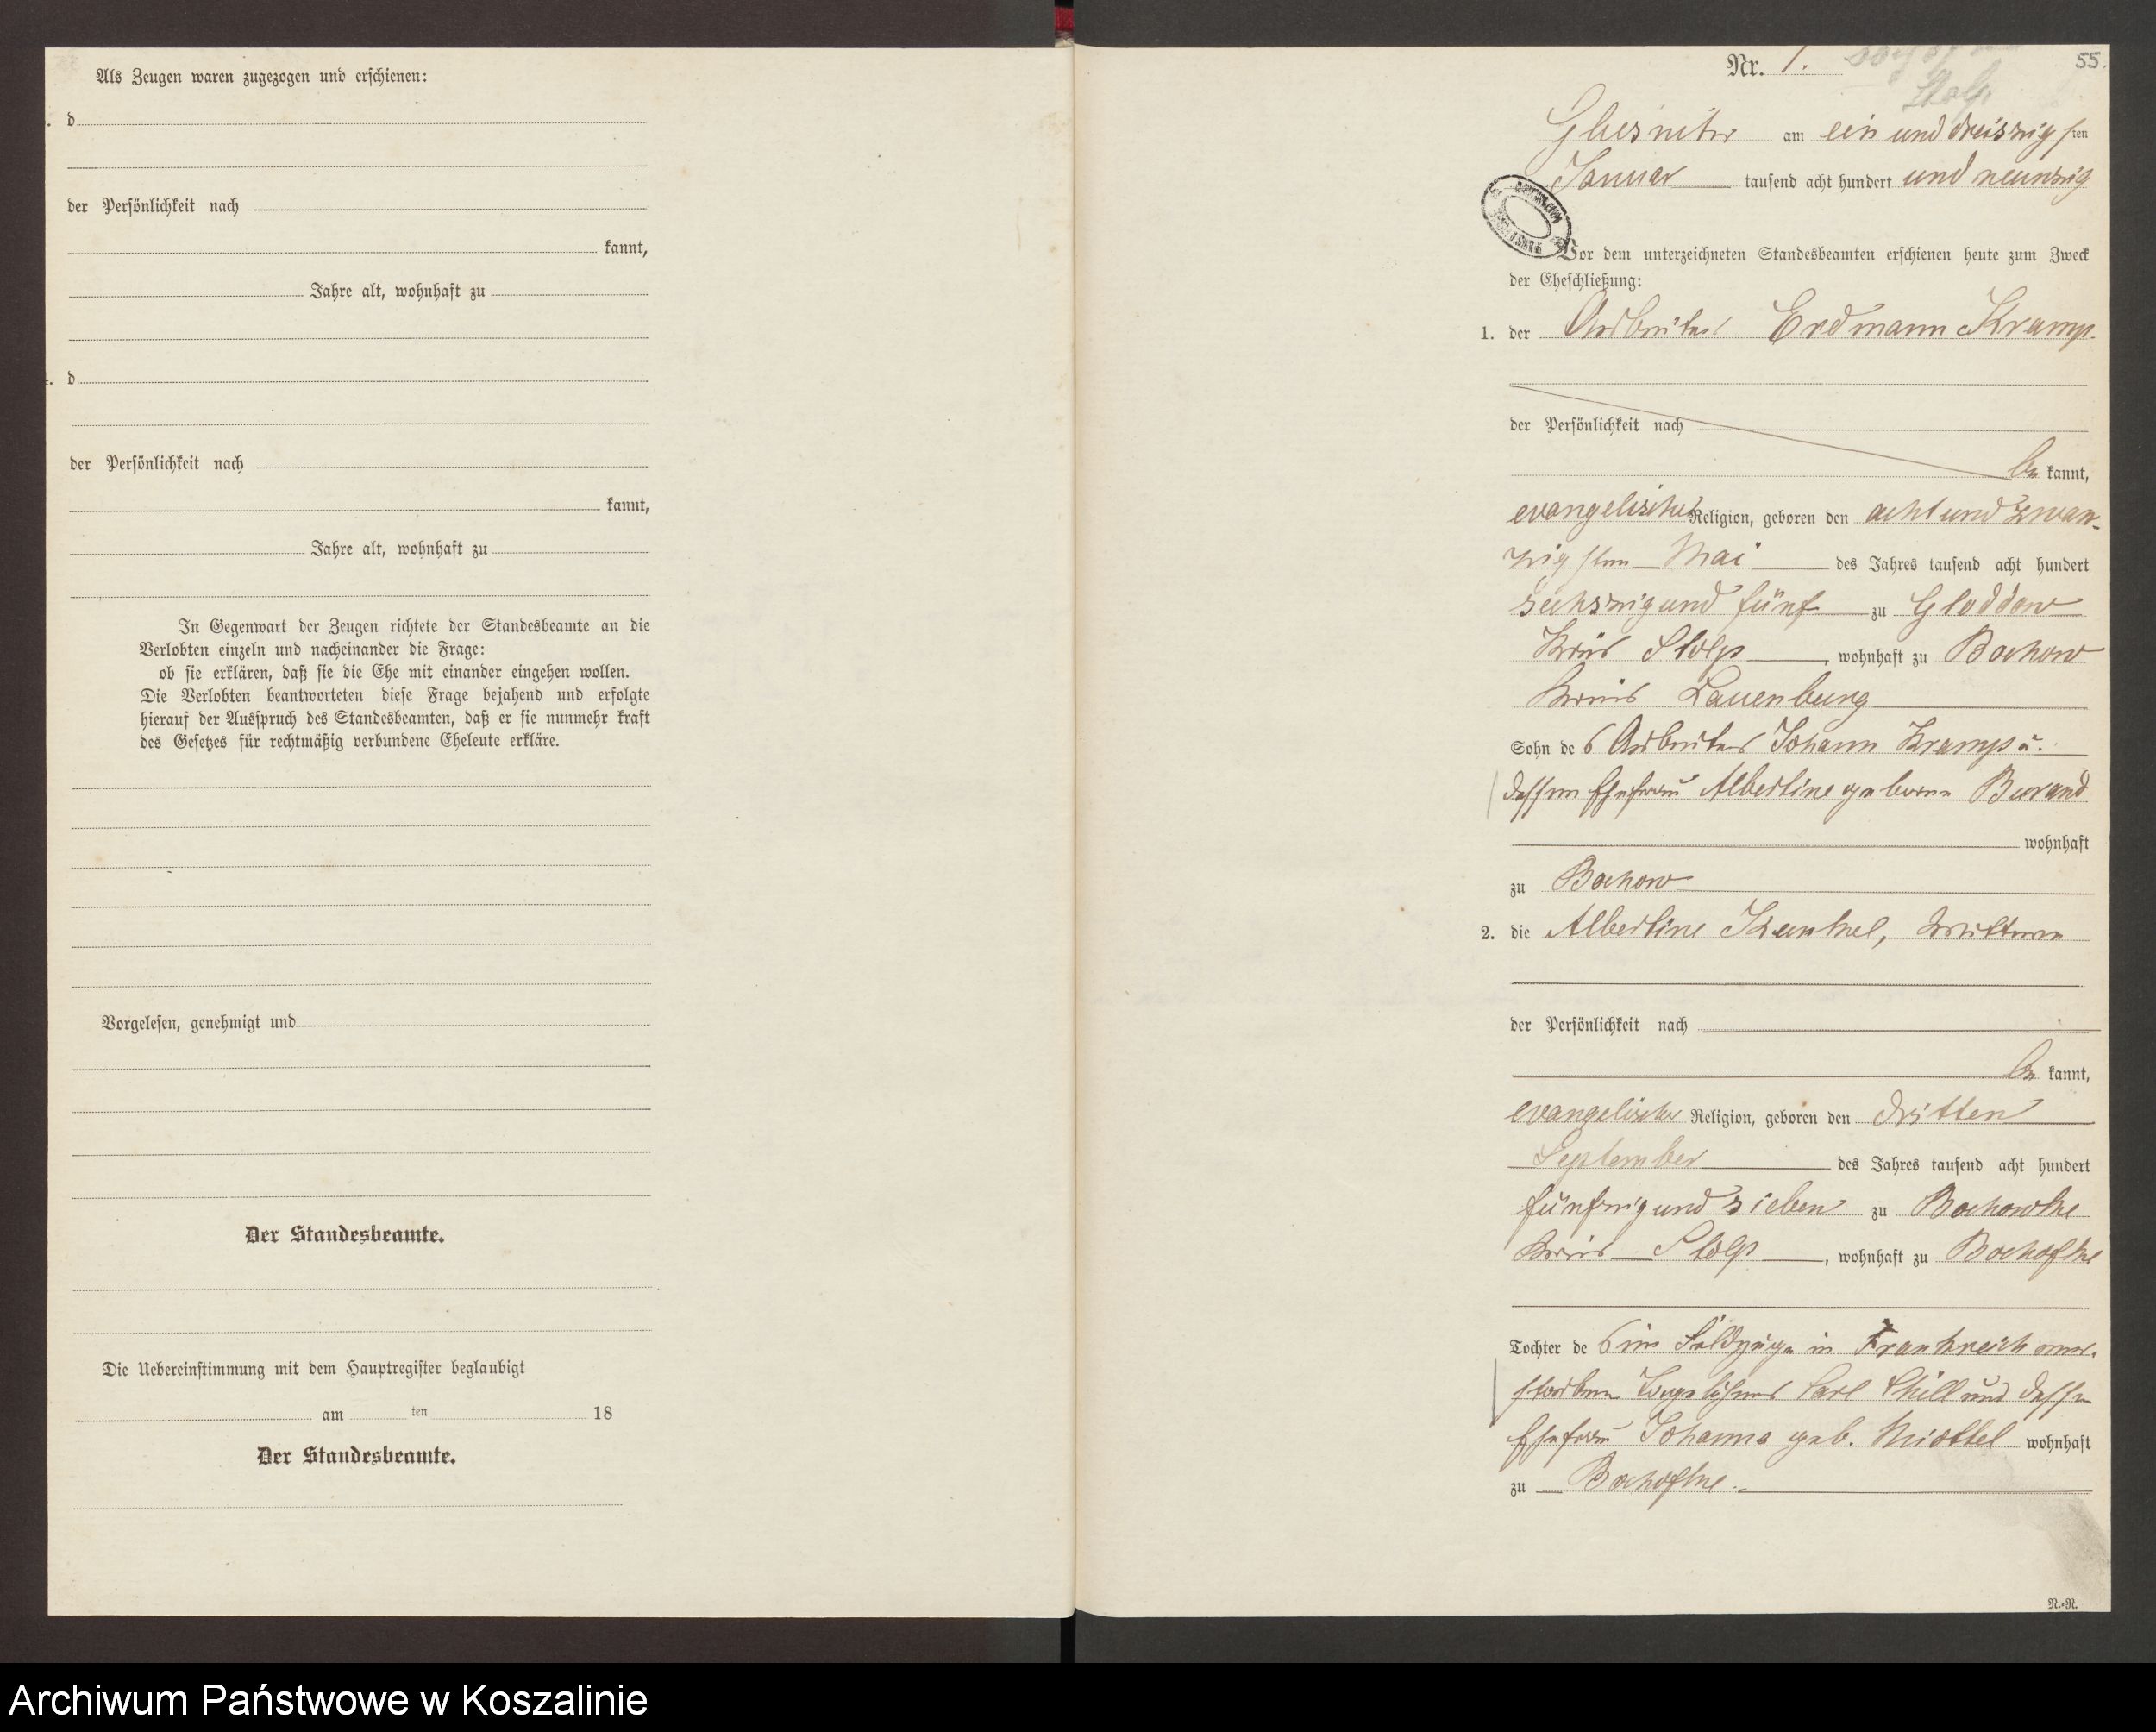 Als Zeugen waren zugezogen und erschienen:
d
der Persönlichkeit nach
kannt,
Jahre alt, wohnhaft zu
d
der Persönlichkeit nach
kannt,
Jahre alt, wohnhaft zu
In Gegenwart der Zeugen richtete der Standesbeamte an die
Verlobten einzeln und nacheinander die Frage:
ob sie erklären, daß sie die Ehe mit einander eingehen wollen.
Die Verlobten beantworteten diese Frage bejahend und erfolgte
hierauf der Ausspruch des Standesbeamten, daß er sie nunmehr kraft
des Gesetzes für rechtmäßig verbundene Eheleute erkläre.
Vorgelesen, genehmigt und
Der Standesbeamte.
Die Uebereinstimmung mit dem Hauptregister beglaubigt
am ten 18
Der Standesbeamte.
55.
Nr. 1.
Stolp
Gluesnitz am ein und dreiszig sten
Januar tausend acht hundert und neunzig
Vor dem unterzeichneten Standesbeamten erschienen heute zum Zweck
der Eheschließung:
1. der Arbeiter Erdmann Kramp
der Persönlichkeit nach
be kannt,
evangelischer Religion, geboren den acht und zwan-
zigsten Mai des Jahres tausend acht hundert
sechszig und fünf zu Gloddow
Kreis Stolp, wohnhaft zu Bochow
Kreis Lauenburg
Sohn des Arbeiters Johann Kramp u.
dessen Ehefrau Albertine geborne Burand
wohnhaft
zu Bochow
2. die Albertine Kunkel,
der Persönlichkeit nach
be kannt,
evangelischer Religion, geboren den dritten
September des Jahres tausend acht hundert
fünfzig und sieben zu Bochowke
Kreis Stolp, wohnhaft zu Bochofke
Tochter des im Feldzuge in Frankreich ver-
storbenen Tagelöhners Carl und dessen
Ehefrau Johanna geb. wohnhaft
zu Bochofke.
N.-R.
Archiwum Państwowe w Koszalinie